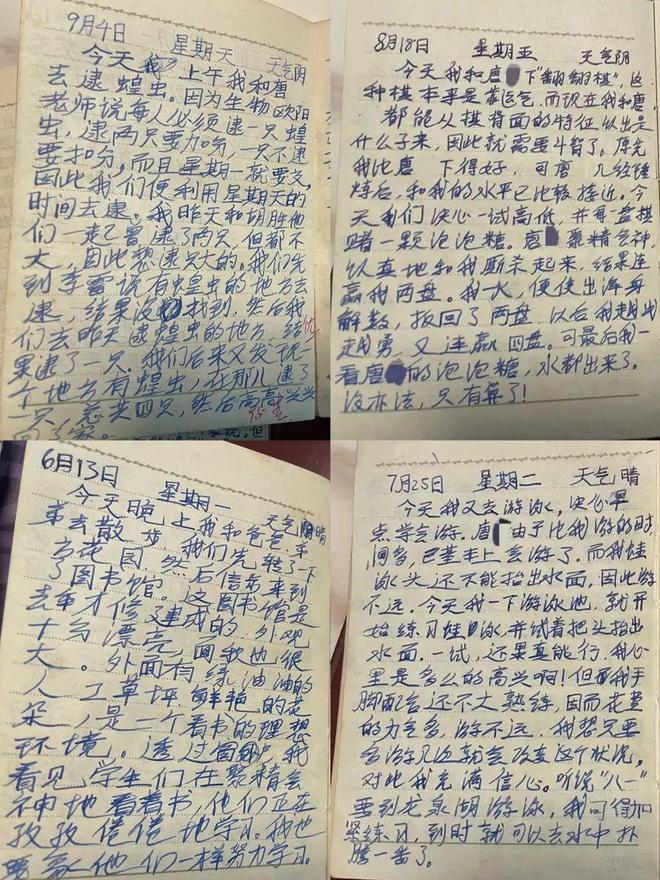 9月4日 星期天 天气阴
今天上午我和唐
去逮蝗虫。因为生物欧阳
老师说每人必须逮一只蝗
虫，逮两只要加分，一只不逮
要扣分，而且星期一就要交，
因此我们便利用星期天的
时间去逮。我昨天和胡胜他
们一起曾逮了两只，但都不
大，因此想逮只大的。我们先
到李雷说有蝗虫的地方去
逮，结果没找到，然后我
们去昨天逮蝗虫的地方，结
果逮了一只。我们后来又发现一
个地方有蝗虫，在那儿逮了
只，总共四只，然后高高兴兴
回了家。
8月18日 星期五 天气阴
今天我和唐 下“翻翻棋”，这
种棋本来是靠运气，而现在我和唐
都能从棋背面的特征认出是
什么子来，因此就需要斗智了。原先
我比唐 下得好，可唐 几经锤
炼后，和我的水平已比较接近。今
天我们决心一试高低，并每盘棋
赌一颗泡泡糖。唐 聚精会神，
认真地和我厮杀起来，结果连
赢我两盘。我一火，便使出浑身
解数，扳回了两盘，以后我越战
越勇，又连赢四盘。可最后我一
看唐 的泡泡糖，水都出来了。
没办法，只有算了！
6月13日 星期一 天气阴晴
今天晚上我和爸爸、弟
弟去散步，我们先转了一下
花园，然后信步来到
了图书馆。这图书馆是
去年才修建成的，外观
十分漂亮，面积也很
大。外面有绿油油的
人工草坪，鲜艳的花
朵，是一个看书的理想
环境。透过窗户，我
看见学生们在聚精会
神地看着书，他们正在
孜孜倦倦地学习。我也
要象他们一样努力学习。
7月25日 星期二 天气晴
今天我又去游泳，决心早
点学会游。唐 由于比我游的时
间多，已基本上会游了。而我蛙
泳头还不能抬出水面，因此游
不远。今天我一下游泳池，就开
始练习蛙泳，并试着把头抬出
水面，一试，还果真能行，我心
里是多么的高兴啊！但因我手
脚配合还不大熟练，因而花费
的力气多，游不远。我想只要
多游几边就会改变这个状况，
对此我充满信心。听说“八一”
要到龙泉湖游泳，我可得加
紧练习，到时就可以去水中扑
腾一番了。